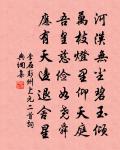 河漢無塵碧玉傾
萬枝燈星仰天庭
吾皇慈儉如堯舜
應有天邊退舍星
李石彭州上元二首詞
典調集